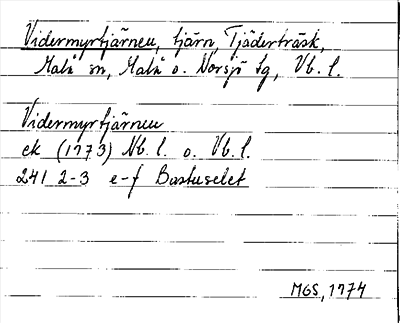 Vidermyrtjärnen, tjärn, Tjäderträsk,
Malå sn, Malå o. Norsjö tg, Vb. l.
Vidermyrtjärnen
ek (1973) Nb. l. o. Vb. l.
241 2-3 e-f Bastuselet
MGS, 1974